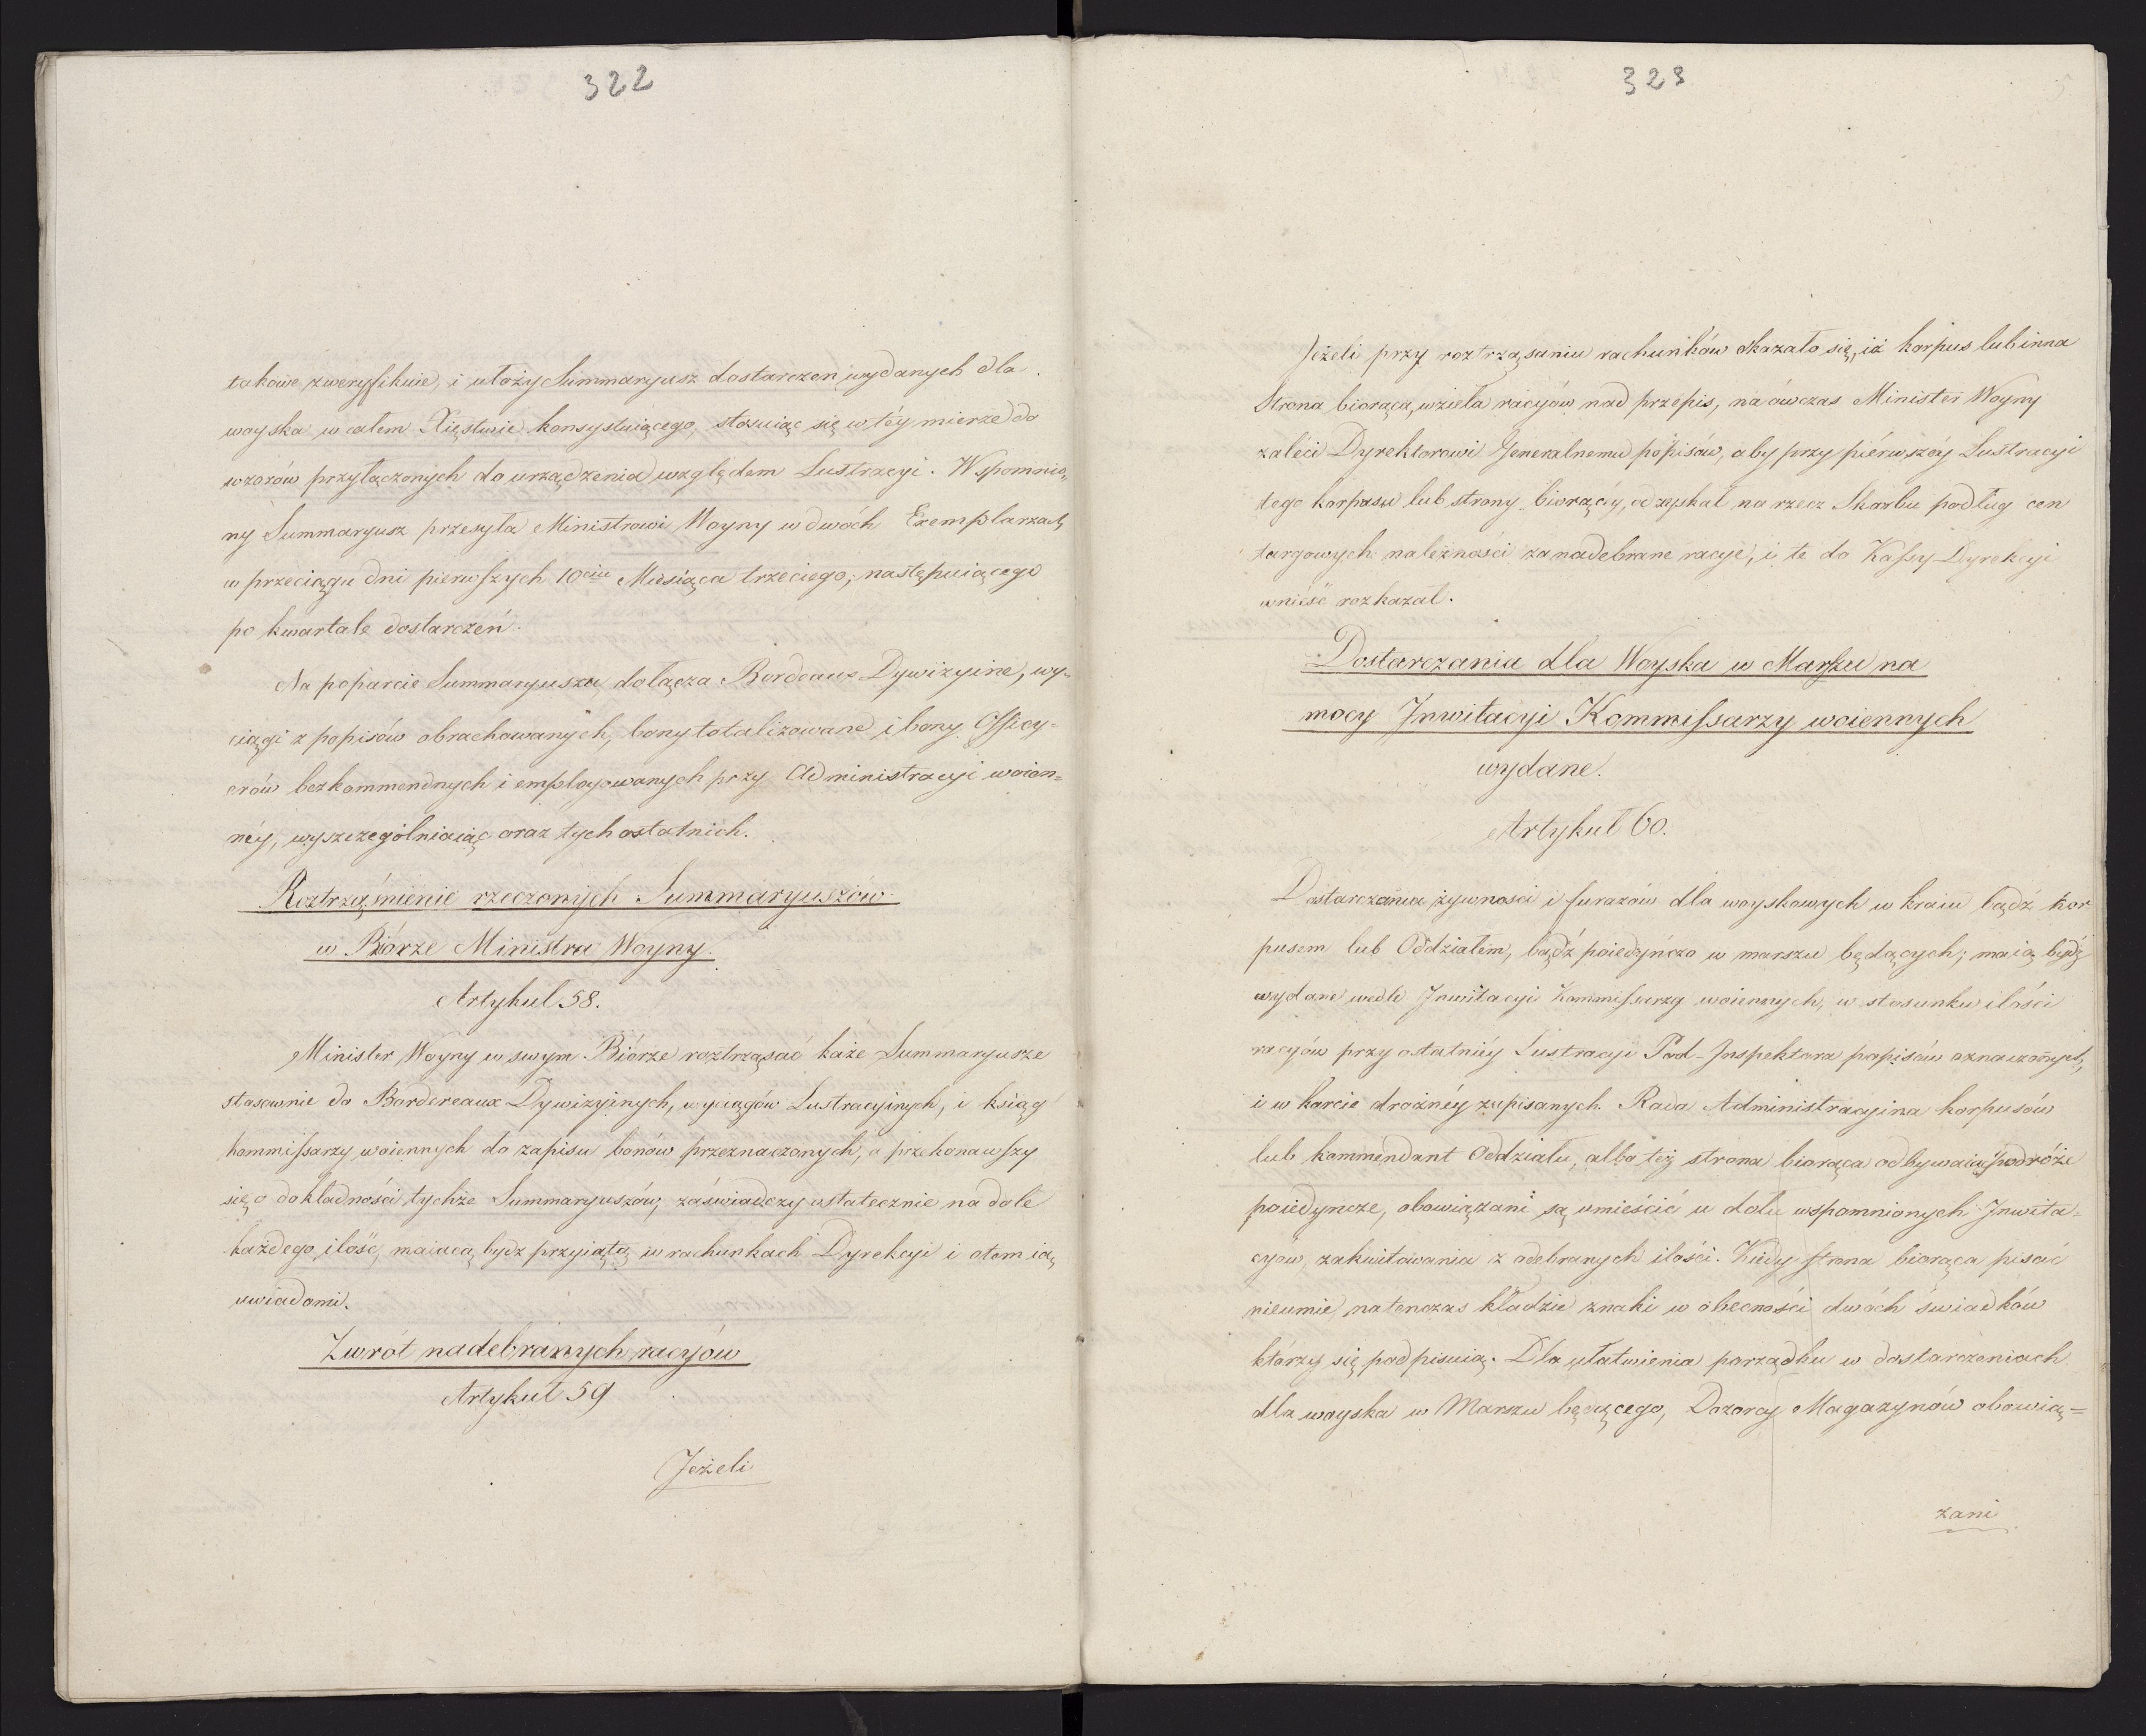 322
takowe zweryfikuie, i ułoży Summaryusz dostarczen wydanych dla
woyska w całem Xięstwie konsystuiącego, stosuiąc się w téy mierze do
wzorów przyłączonych do urządzenia względem Lustracyi. Wspomnio„
ny Summaryusz przesyła Ministrowi Woyny w dwóch Exemplarzach
w przeciągu dni pierwszych 10ciu Miesiąca trzeciego, następuiącego
po kwartale dostarczeń.
Na poparcie Summaryusza dołącza Bordeaux Dywizyine, wy„
ciągi z popisów obrachowanych, bony totalizowane i bony Officy=
erów bezkommendnych i employowanych przy Administracyi woien=
néy, wyszczególniaiąc oraz tych ostatnich.
Roztrząśnienie rzeczonych Summaryuszów
w Biórze Ministra Woyny.
Artykuł 58.
Minister Woyny w swym Biórze roztrząsać każe Summaryusze
stosownie do Bordereaux Dywizyinych, wyciągów Lustracyinych, i ksiąg
kommissarzy woiennych do zapisu bonów przeznaczonych, a przekonawszy
się o dokładności tychże Summaryuszów, zaświadczy ostatecznie na dole
każdego ilość, maiącą bydz przyiętą w rachunkach Dyrekcyi i otem ią
uwiadomi.
Zwrót nadebranych racyów
Artykuł 59
Jeżeli
323
Jeżeli przy roztrząsaniu rachunków okazało się, iż korpus lub inna
Strona biorąca, wzieła racyów nad przepis, na ówczas Minister Woyny
zaléci Dyrektorowi Jeneralnemu popisów, aby przy piérwszéy Lustracyi
tego korpusu lub strony biorącéy, odzyskał na rzecz Skarbu podług cen
targowych należności za nadebrane racye, i te do Kassy Dyrekcyi
wnieść rozkazał.
Dostarczania dla Woyska w Marszu na
mocy Inwitacyi Kommissarzy woiennych
wydane.
Artykuł 60.
Dostarczania żywności i furażów dla woyskowych w kraiu bądź kor
pusem lub Oddziałem, bądź poiedyńczo w marszu będących; maią bydź
wydane wedle Inwitacyi Kommissarzy woiennych, w stosunku ilości
racyów przy ostatniéy Lustracyi Pod-Inspektora popisów oznaczonych,
i w karcie drożnéy zapisanych. Rada Administracyina korpusów
lub kommendant Oddziału, albo też strona biorąca odbywaiąc podróże
poiedyncze, obowiązani są umieścić u dołu wspomnionych Inwita=
cyów, zakwitowania z odebranych ilości. Kiedy strona biorąca pisać
nieumie, natenczas kładzie znaki w obecności dwóch świadków
którzy się podpisuią. Dla ułatwienia porządku w dostarczeniach
dla woyska w Marszu będącego, Dozorcy Magazynów obowią=
zani